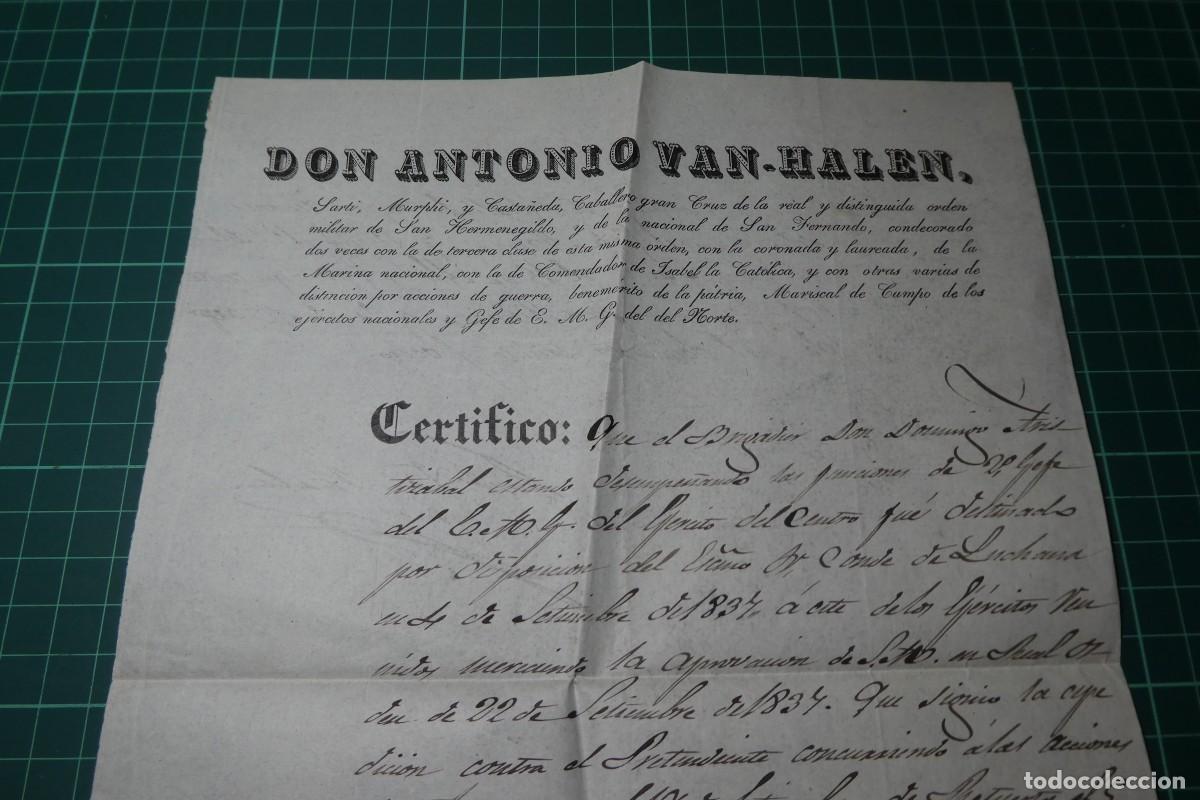 DON ANTONIO VAN-HALEN.
Sarti, Murphi, y Castañeda, Caballero gran Cruz de la real y distinguida orden
militar de San Hermenegildo, y de la nacional de San Fernando, condecorado
dos veces con la de tercera clase de esta misma órden, con la coronada y laureada, de la
Marina nacional, con la de Comendador de Isabel la Católica, y con otras varias de
distincion por acciones de guerra, benemerito de la pátria, Mariscal de Campo de los
ejércitos nacionales y Gefe de E. M. G. del del Norte.
Certifico: Que el Brigadier Don Domingo Aris
tizabal estando desempeñando las funciones de 2º Gefe
del E. M. G. del Ejercito del Centro fué destinado
por disposicion del Exmo Sr Conde de Luchana
en 4 de Setiembre de 1837, á este de los Ejércitos Reu
nidos mereciendo la aprovacion de S. M. en Real Or
den de 22 de Setiembre de 1837. Que siguio la espe
dicion contra el Pretendiente concurriendo á las acciones
todocoleccion